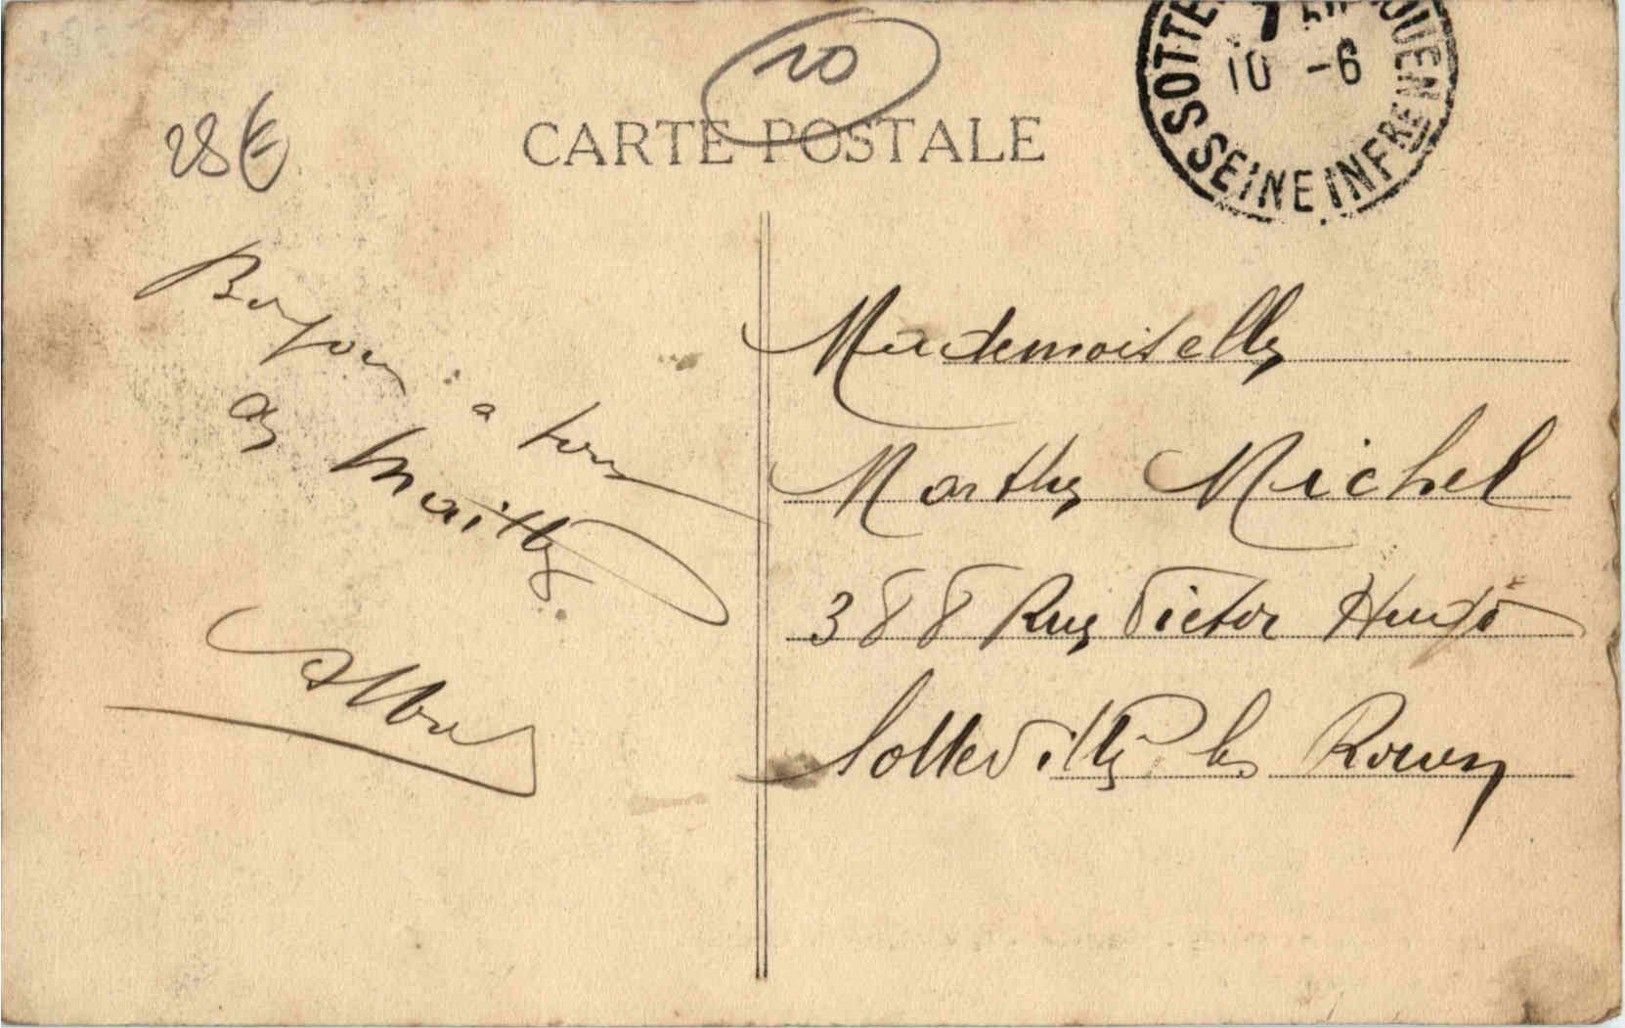 10
28€
CARTE POSTALE
SOTTE OUEN
10 -6
SEINE INFRE
Bonjour a tous
de Mailly
Albert
Mademoiselle
Marthe Michel
388 Rue Victor Hugo
Sotteville les Rouen